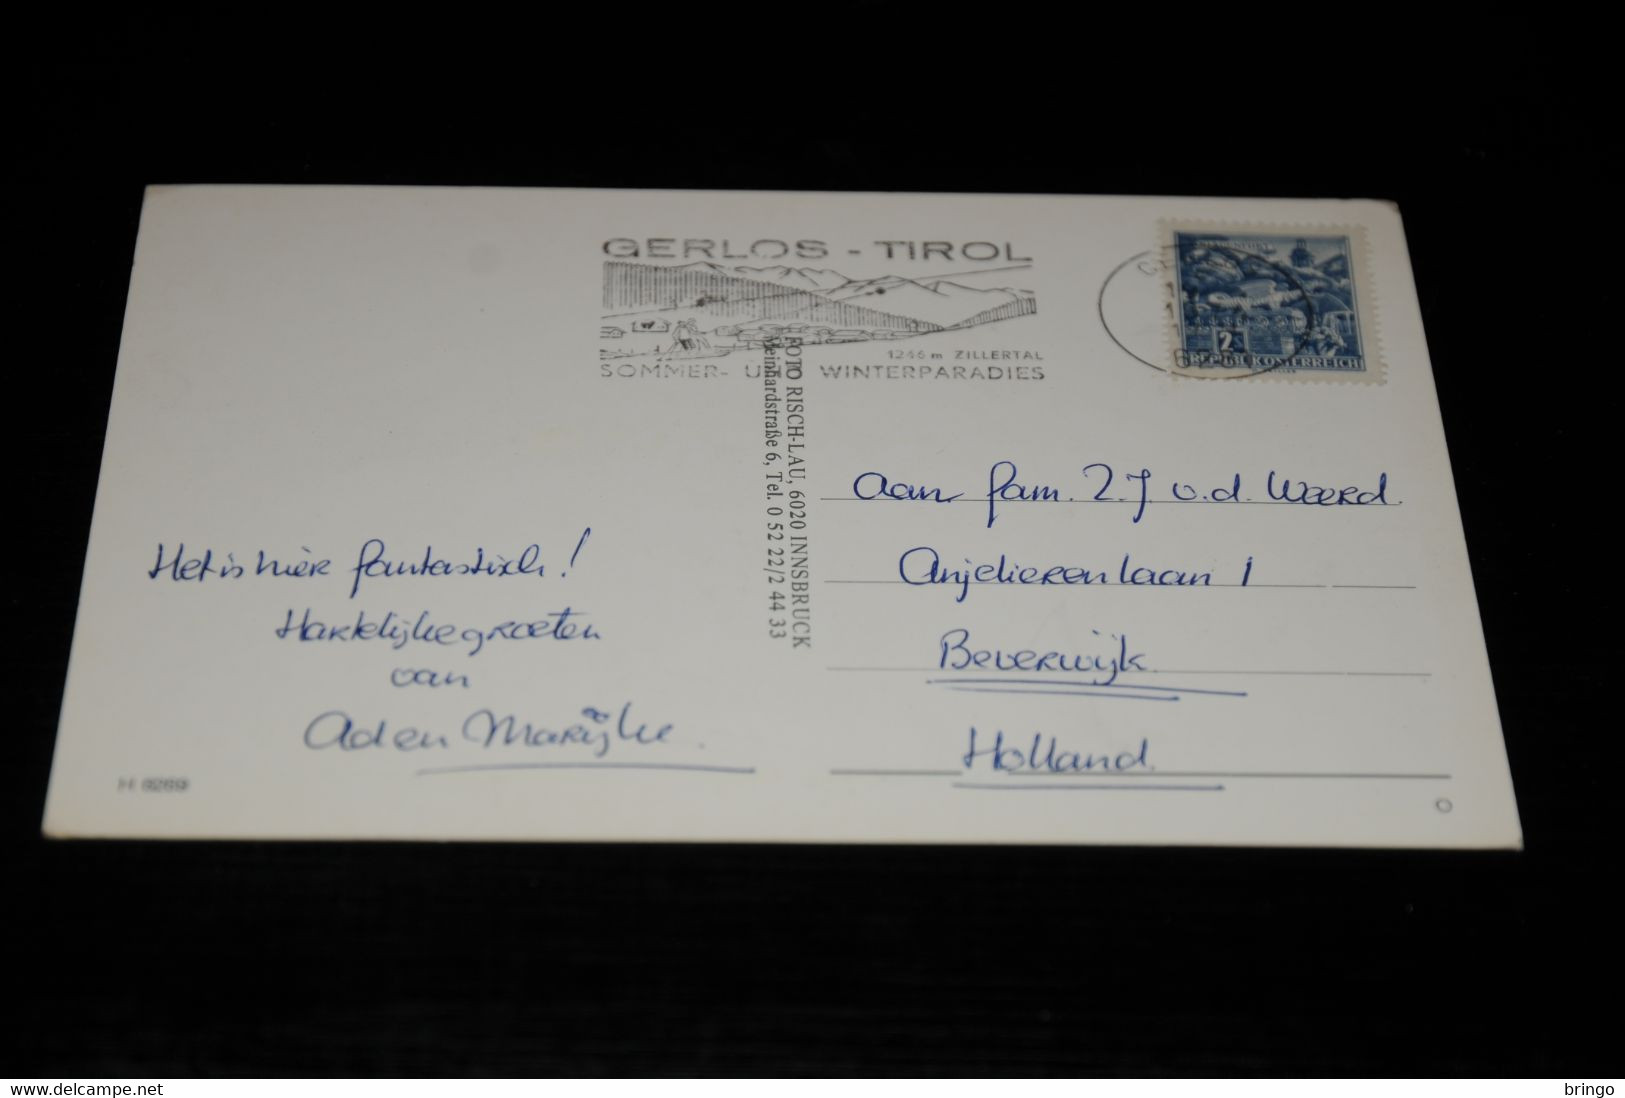 GERLOS - TIROL
1246 m ZILLERTAL
SOMMER- U WINTERPARADIES
KLAGENFURT
2
REPUBLIK ÖSTERREICH
FOTO RISCH-LAU, 6020 INNSBRUCK
Meinhardstraße 6, Tel. 0 52 22/2 44 33
Het is hier fantastisch!
Hartelijke groeten
van
Ad en Marijke.
H 6269
Aan fam. Z.J. v.d. Weerd.
Anjelierenlaan 1
Beverwijk
Holland.
delcampe.net
bringo